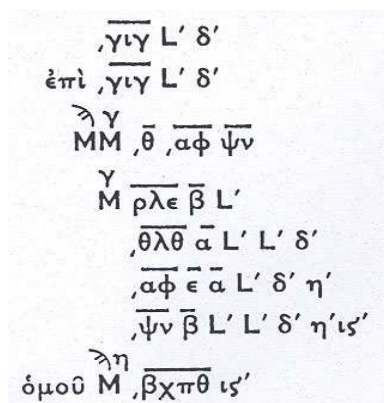 ͵γ̅ι̅γ̅ L′ δ′
ἐπὶ ͵γ̅ι̅γ̅ L′ δ′
ϡ γ
ΜΜ ͵θ̅ ͵α̅φ̅ ψ̅ν̅
γ
Μ ρ̅λ̅ε̅ β̅ L′
͵θ̅λ̅θ̅ α̅ L′ L′ δ′
͵α̅φ̅ ε̅ α̅ L′ δ′ η′
͵ψ̅ν̅ β̅ L′ L′ δ′ η′ις′
ϡη
ὁμοῦ Μ ͵β̅χ̅π̅θ̅ ις′